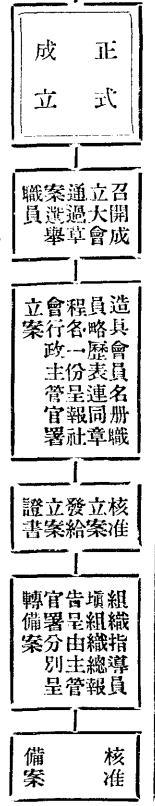 正式
成立
召開成
立大會
通過草
案選舉
職員
造具會員名册職
員略歷表連同章
程名一份呈報社
會行政主管官署
立案
核准
立案
發給
立案
證書
組織指導員
塡組織總報
告呈由主管
官署分別呈
轉備案
核准
備案